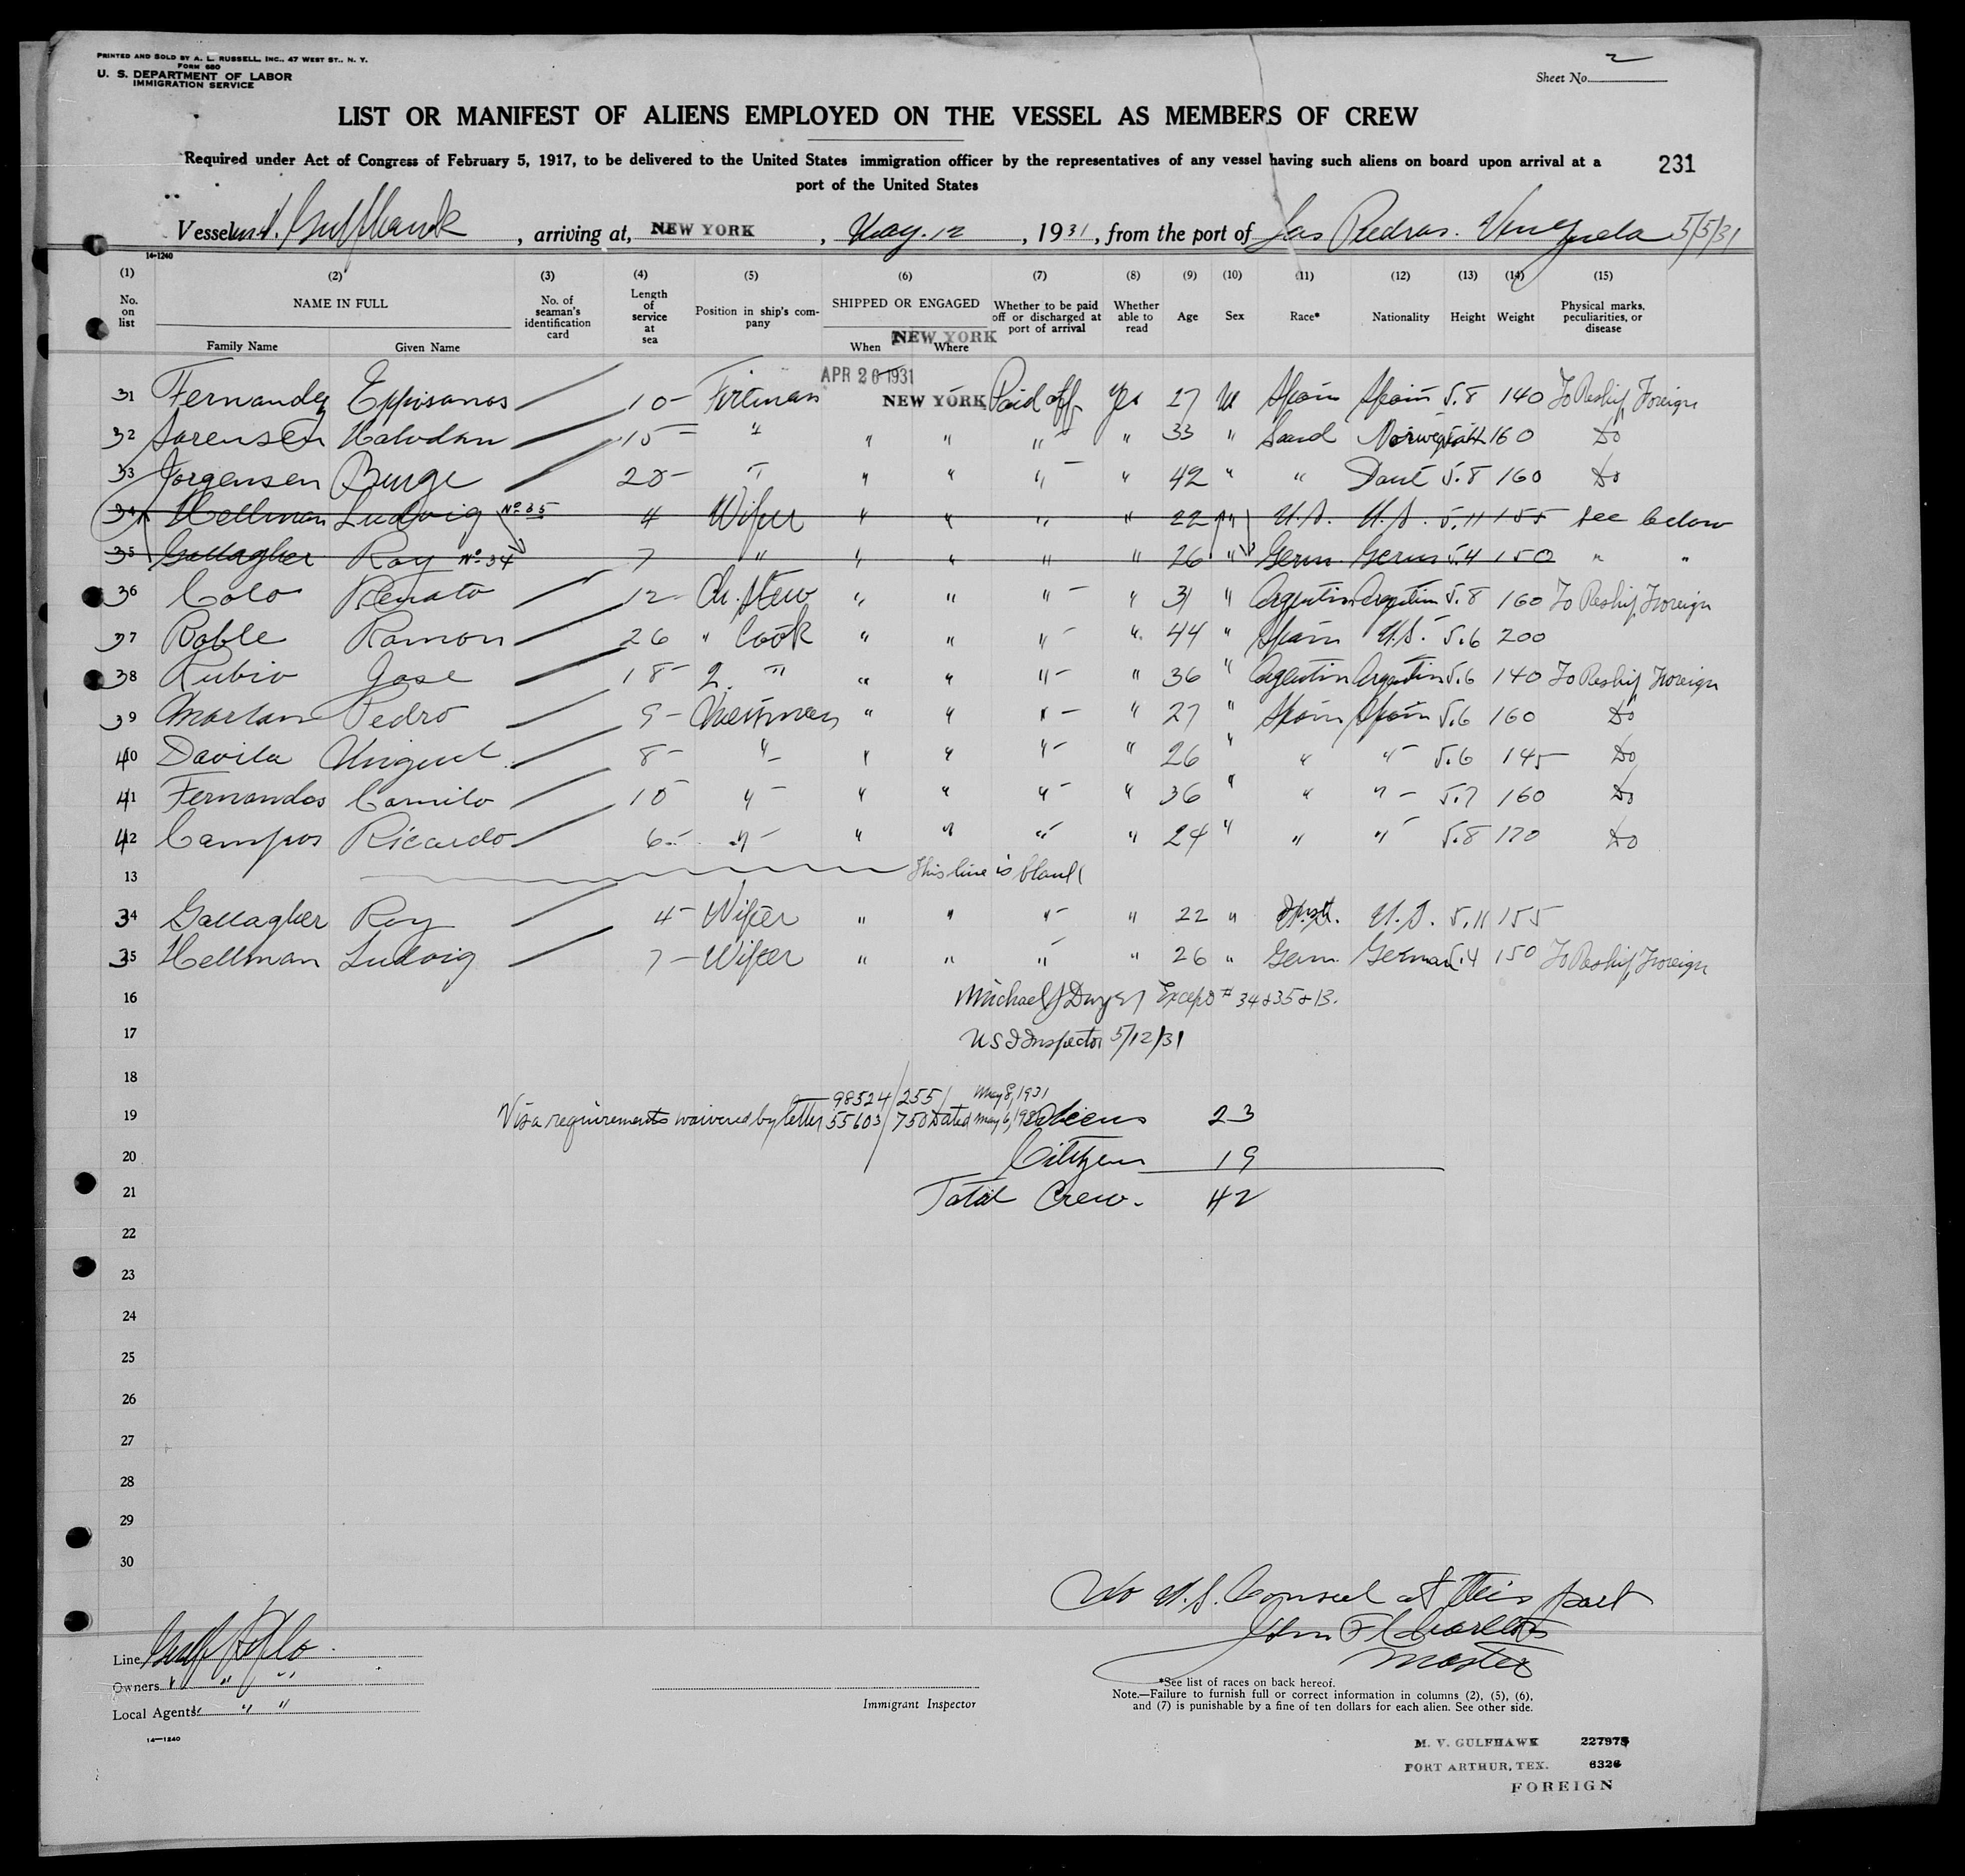 PRINTED AND SOLD BY A. L. RUSSELL, INC., 47 WEST ST., N. Y.
FORM 680
U. S. DEPARTMENT OF LABOR
IMMIGRATION SERVICE
Sheet No. 2
LIST OR MANIFEST OF ALIENS EMPLOYED ON THE VESSEL AS MEMBERS OF CREW
Required under Act of Congress of February 5, 1917, to be delivered to the United States immigration officer by the representatives of any vessel having such aliens on board upon arrival at a
port of the United States
231
Vessel Gulfhawk, arriving at, NEW YORK, May. 12, 1931, from the port of Las Piedras. Venezuela 5/5/31
14-1240
(1) (2) (3) (4) (5) (6) (7) (8) (9) (10) (11) (12) (13) (14) (15)
No. on list NAME IN FULL No. of seaman's identification card Length of service at sea Position in ship's company SHIPPED OR ENGAGED Whether to be paid off or discharged at port of arrival Whether able to read Age Sex Race* Nationality Height Weight Physical marks, peculiarities, or disease
Family Name Given Name When Where
NEW YORK
APR 26 1931
31 Fernandez 10 Fireman NEW YORK Paid off Yes 27 M Spain Spain 5.8 140 To Reship Foreign
32 Sorensen Halvdan 15 " " " " " 33 " Scand Norwegian 160 Do
33 Jorgensen Burge 20 " " " " " 42 " " Dane 5.8 160 Do
34 Hellman Ludvig No 35 4 Wiper " " " " 22 " U.S. U.S. 5.11 155 See below
35 Gallagher Roy No 34 7 " " " " " 26 " Germ. Germ 5.4 150 " "
36 Colo Renato 12 Ch. Stew " " " " 31 " Argentin Argentin 5.8 160 To Reship Foreign
37 Roble Ramon 26 " Cook " " " " 44 " Spain U.S. 5.6 200
38 Rubio Jose 18 2. " " " " " 36 " Argentin Argentin 5.6 140 To Reship Foreign
39 Pedro 9 Messman " " " " 27 " Spain Spain 5.6 160 Do
40 Davila Miguel 8 " " " " " 26 " " " 5.6 145 Do
41 Fernandos Camilo 10 " " " " " 36 " " " 5.7 160 Do
42 Campos Ricardo 6 " " " " " 24 " " " 5.8 170 Do
13 This line is blank
34 Gallagher Roy 4 Wiper " " " " 22 " U.S. 5.11 155
35 Hellman Ludvig 7 Wiper " " " " 26 " Germ. German 5.4 150 To Reship Foreign
16 Michael J Dwyer Except # 34 & 35 & 13.
17 U S I Inspector 5/12/31
18
98524/255 May 8, 1931
19 Visa requirements waived by letter 55603/750 Dated May 6, Aliens 23
20 Citizens 19
21 Total Crew. 42
22
23
24
25
26
27
28
29
30
No U.S. Consul at this port
John F Charlton
Master
Line
Owners " " "
Local Agents " " "
Immigrant Inspector
*See list of races on back hereof.
Note.—Failure to furnish full or correct information in columns (2), (5), (6),
and (7) is punishable by a fine of ten dollars for each alien. See other side.
14—1240
M. V. GULFHAWK 227975
PORT ARTHUR, TEX. 6326
FOREIGN